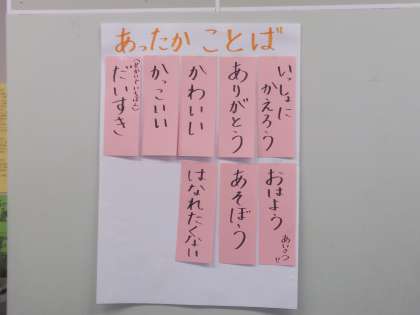 あったかことば
いっしょに
かえろう
ありがとう
かわいい
かっこいい
(せかいでいちばん)
だいすき
おはよう
あそぼう
はなれたくない